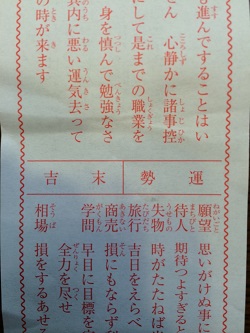 も進んですることはい
さん 心静かに諸事控
にして是までの職業を
身を慎んで勉強なさ
其内に悪い運気去って
の時が来ます
運勢
末吉
願望 思いがけぬ事
待人 期待つよすぎる
失物 時がたたねば
旅行 吉日をえらべ
商売 損にもならず
学問 早目に目標を
全力を尽せ
相場 損をするあせ